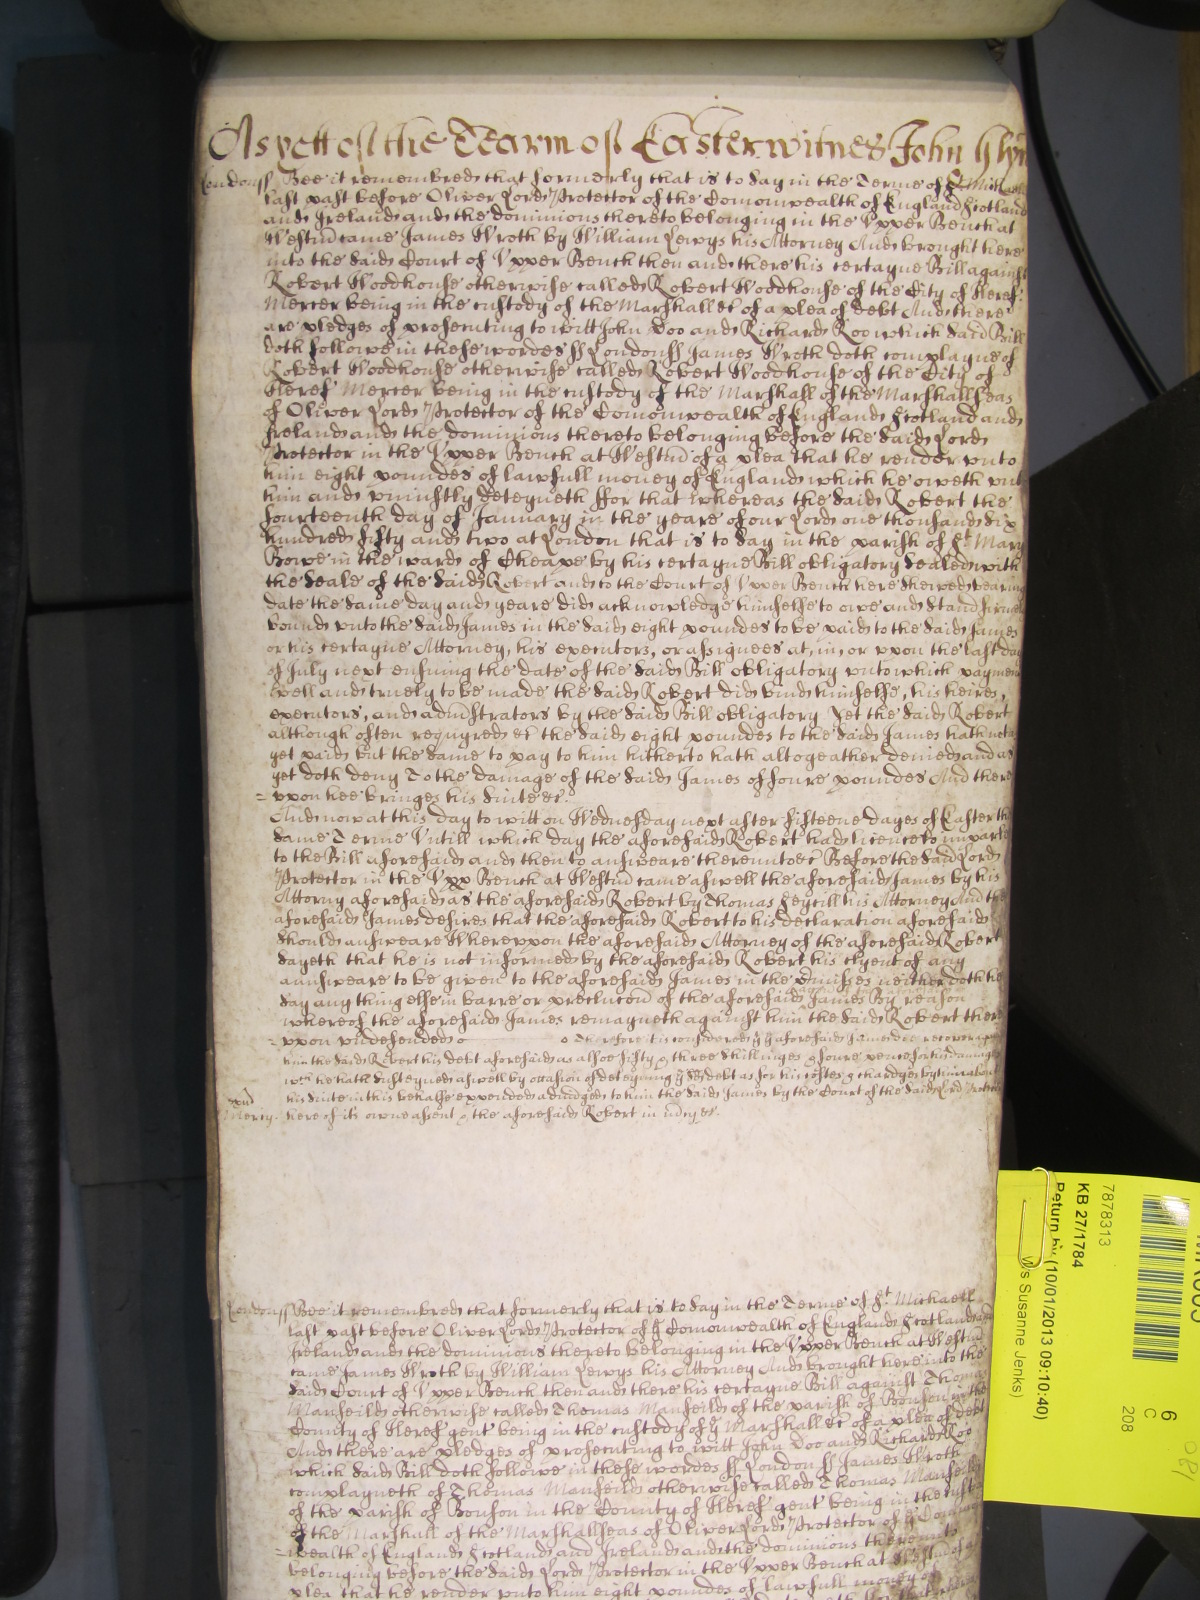 As yett of the Tearm of Easter witnes John Glyn
London ss Bee it remembred that formerly that is to say in the Terme of St Michaell
last past before Oliver Lord Protector of the Comonwealth of England Scotland
and Ireland and the dominions thereto belonging in the Vpper Bench at
Westm came James Wroth by William Lewys his Attorney And brought here
into the said Court of Vpper Bench then and there his certayne Bill against
Robert Woodhouse otherwise called Robert Woodhouse of the City of Heref
Mercer being in the custody of the Marshall &c of a plea of debt And there
are pledges of prosecuting to witt John Doo and Richard Roo which said Bill
doth followe in these wordes ss London ss James Wroth doth complayne of
Robert Woodhouse otherwise called Robert Woodhouse of the City of
Heref Mercer being in the custody of the Marshall of the Marshallseas
of Oliver Lord Protector of the Comonwealth of England Scotland and
Ireland and the dominions thereto belonging before the said Lord
Protector in the Vpper Bench at Westm of a plea that he render vnto
him eight poundes of lawfull money of England which he oweth vnto
him and vniustly deteyneth ffor that whereas the said Robert the
fourteenth day of January in the yeare of our Lord one thousand six
hundred fifty and two at London that is to say in the parish of St Mary
Bowe in the ward of Cheape by his certayne Bill obligatory sealed with
the seale of the said Robert and to the Court of Vpper Bench here shewed bearing
date the same day and yeare did acknowledge himselfe to owe and stand firmely
bound vnto the said James in the said eight poundes to be paid to the said James
or his certayne Attorney, his executors, or assignees at, in, or vpon the last day
of July next ensuing the date of the said Bill obligatory vnto which payment
well and truely to be made the said Robert did bind himselfe, his heires,
executors, and adm̅strators by the said Bill obligatory Yet the said Robert
although often requyred &c the said eight poundes to the said James hath not as
yet paid but the same to pay to him hitherto hath altogeather denied and as
yet doth deny To the damage of the said James of foure poundes And there
= vpon hee bringes his suite &c.
And now at this day to witt on Wednesday next after fifteene dayes of Easter the
same Terme Vntill which day the aforesaid Robert had licence to imparle
to the Bill aforesaid and then to answeare therevnto &c Before the said Lord
Protector in the Vpp Bench at Westm came aswell the aforesaid James by his
Attorny aforesaid as the aforesaid Robert by Thomas his Attorney And the
aforesaid James desires that the aforesaid Robert to his declaration aforesaid
should answeare Wherevpon the aforesaid Attorney of the aforesaid Robert
sayeth that he is not informed by the aforesaid Robert his clyent of any
annsweare to be given to the aforesaid James in the p̅misses neither doth he
say any thing else in barre or preclucon of the aforesaid James By reason
whereof the aforesaid James remayneth against him the said Robert there
= vpon vndefended o o Therefore it is considered yt ye aforesaid James doe recover against
him the said Robert his debt aforesaid as alsoe fifty & three shillinges & foure pence for his damages
wch he hath susteyned aswell by occasion of deteyning ye sd debt as for his costes & chardges by him about
his suite in this behalfe expended adiudged to him the said James by the Court of the said Lord Protector
Mercy. here of its owne assent & the aforesaid Robert in mercy &c.
London ss Bee it remembred that formerly that is to say in the Terme of St Michaell
last past before Oliver Lord Protector of ye Comonwealth of England Scotland and
Ireland and the dominions thereto belonging in the Vpper Bench at Westm
came James Wroth by William Lewys his Attorney And brought here into the
said Court of Vpper Bench then and there his certayne Bill against Thomas
Manseild otherwise called Thomas Manseild of the parish of Bonson in the
County of Heref gent being in the custody of ye Marshall &c of a plea of debt
And there are pledges of prosecuting to witt John Doo and Richard Roo
which said Bill doth followe in these wordes ss London ss James Wroth
complayneth of Thomas Manseild otherwise called Thomas Manseild
of the parish of Bonson in the County of Heref gent being in the custody
of the Marshall of the Marshallseas of Oliver Lord Protector of ye Comon
= wealth of England Scotland and Ireland and the dominions therevnto
belonging before the said Lord Protector in the Vpper Bench at Westm of a
plea that he render vnto him eight poundes of lawfull money of
7878313
KB 27/1784
Return by (10/01/2013 09:10:40)
Ms Susanne Jenks)
6
C
208